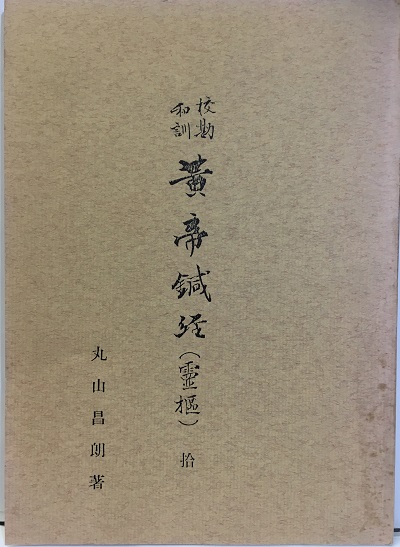 校勘
和訓
黄帝鍼経(靈樞)拾
丸山昌朗著